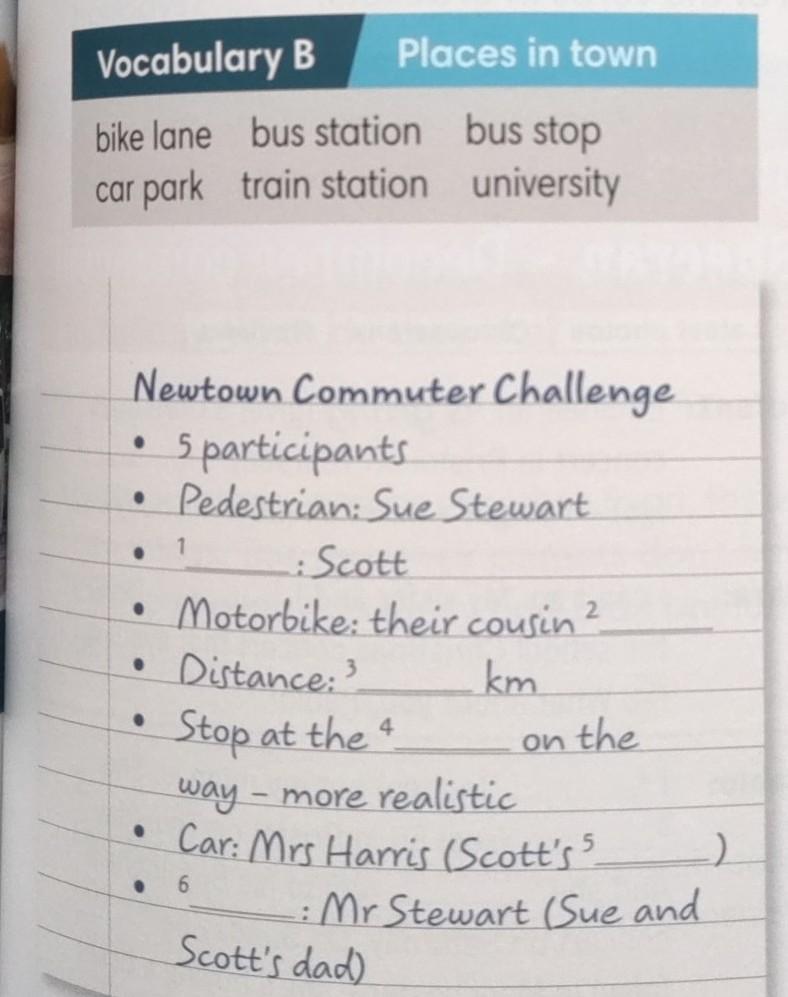 Vocabulary B Places in town
bike lane bus station bus stop
car park train station university
Newtown Commuter Challenge
• 5 participants
• Pedestrian: Sue Stewart
• 1______: Scott
• Motorbike: their cousin 2______
• Distance: 3______ km
• Stop at the 4______ on the
way – more realistic
• Car: Mrs Harris (Scott's 5______)
• 6______: Mr Stewart (Sue and
Scott's dad)